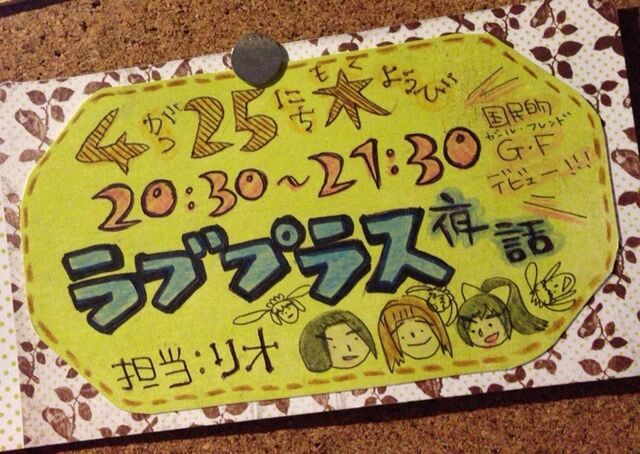 4がつ25にち木もくようび!!
20:30～21:30
国民的
ガールフレンド
G・F
デビュー!!!
ラブプラス夜話
担当:リオ